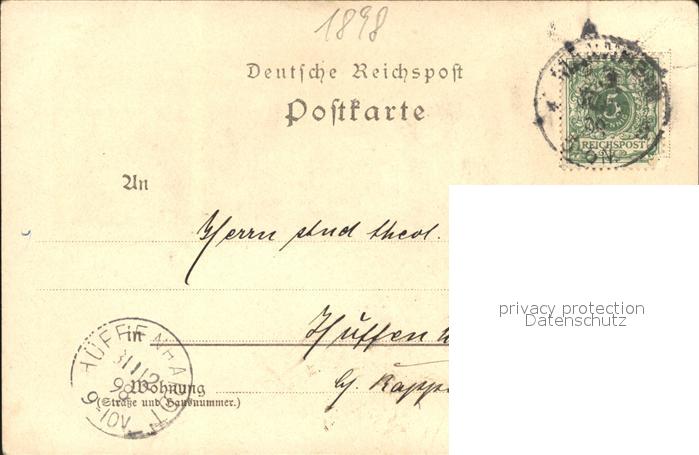 1898
Deutsche Reichspost
Postkarte
5
REICHSPOST
An
Herrn stud theol.
privacy protection
Datenschutz
in Hüffenh
HÜFFENHA
31 12
98
9-10V
Wohnung
(Straße und Hausnummer.)
b/ Rappe